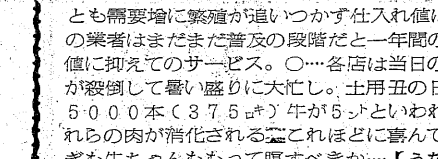 とも需要増に繁殖が追いつかず仕入れ値に
の業者はまだまだ普及の段階だと一年間の
値に抑えてのサービス。○…各店は当日の
が殺倒して暑い盛りに大忙し。土用丑の日
5000本(375㌔)牛が5㌧といわれ
れらの肉が消化される
これほどに喜んで